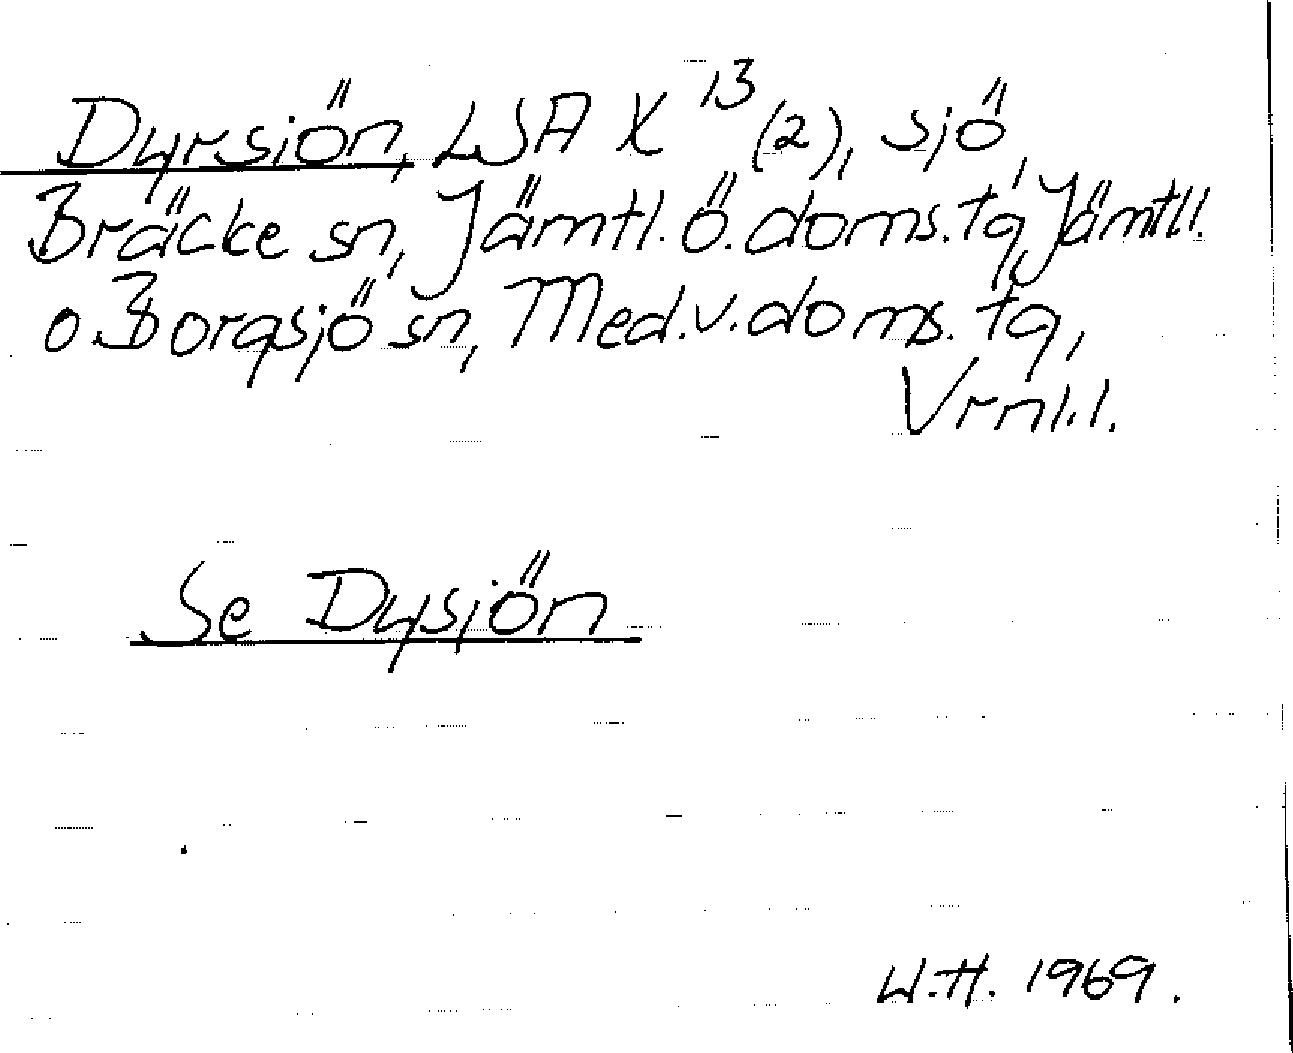 Dyrsiön, LSA X 13 (2), sjö,
Bräcke sn, Jämtl. ö. doms. tg, Jämtl.l.
o Borgsjö sn, Med. v. doms. tg,
Vrnl.l.
Se Dysjön
W.H. 1969.